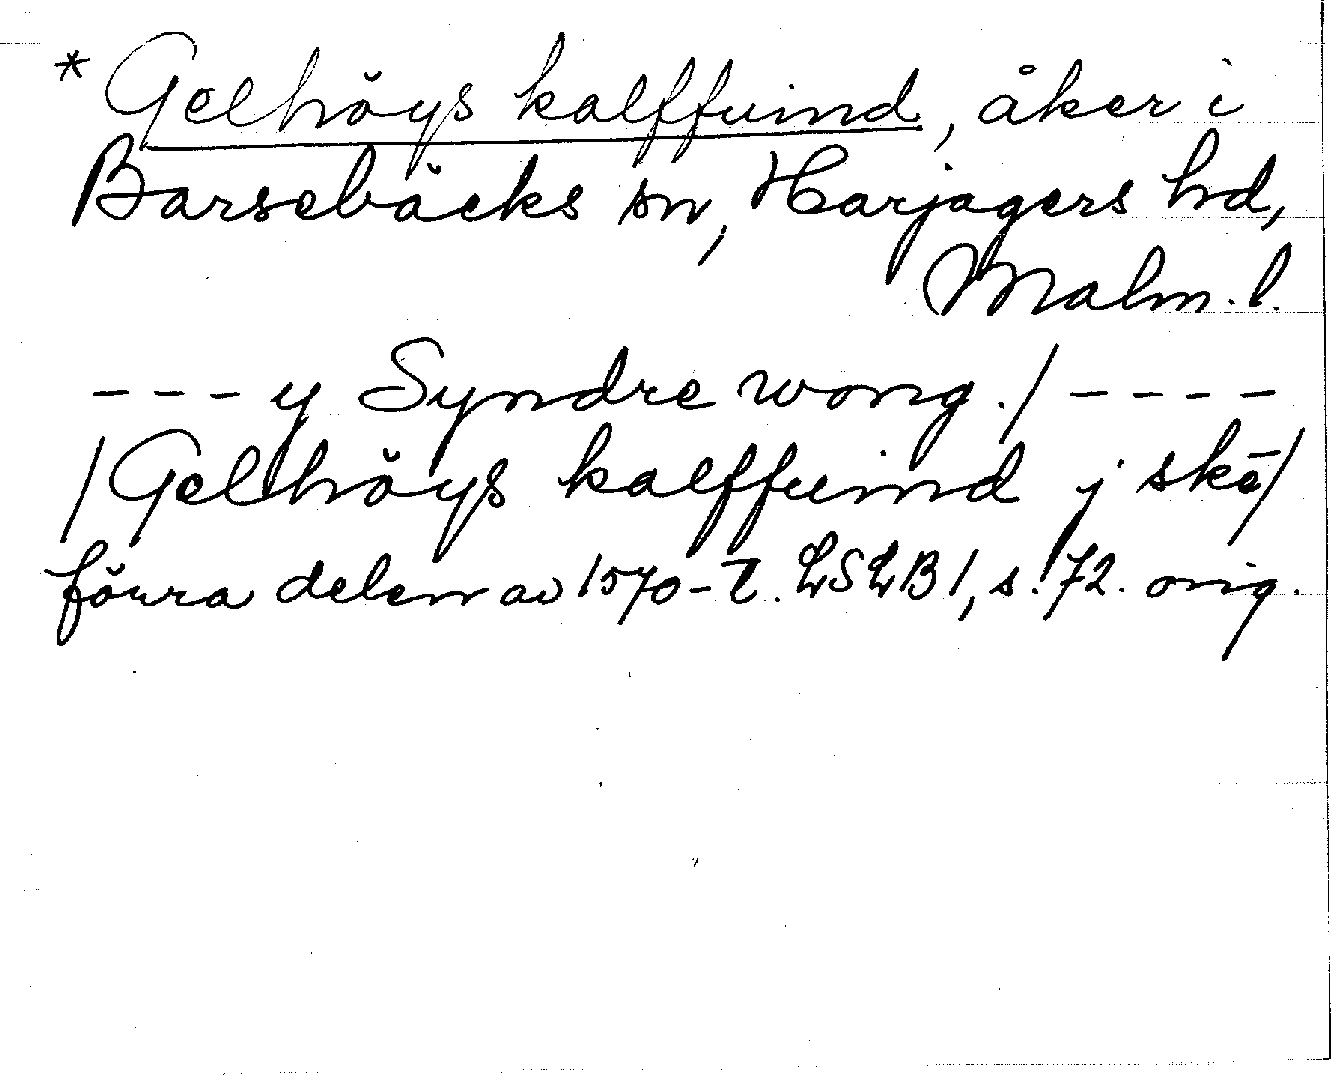 * Gelhöys kalffuind, åker i
Barsebäcks sn, Harjagers hd,
Malm. l.
---y Syndre wong./----
/Gelhöys kalffuind j skē/
förra delen av 1570-t. LSLB 1, s. 72. orig.